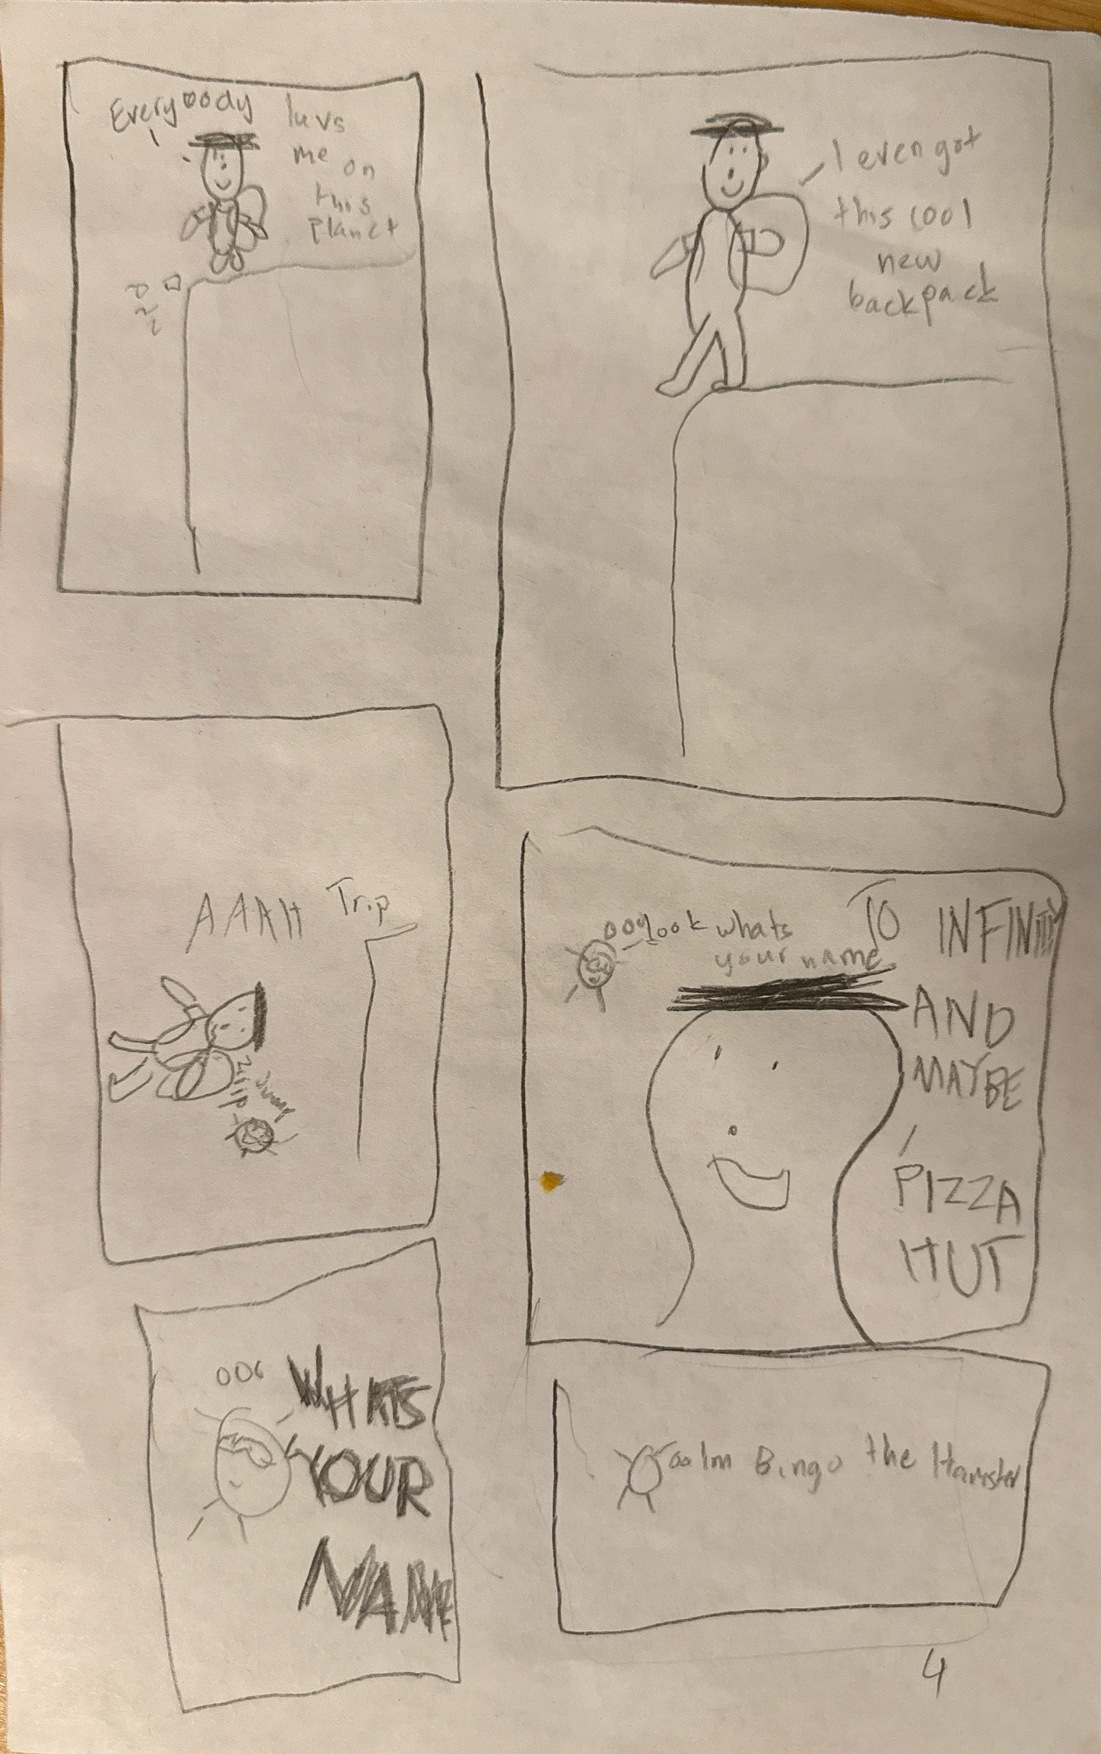 Everyoody luvs
me on
this
planet
I even got
this cool
new
backpack
AAAH Trip
ooo look whats
your name
TO INFINITY
AND
MAYBE
PIZZA
HUT
ooo WHATS
YOUR
NAME
Im Bingo the Hamster
4